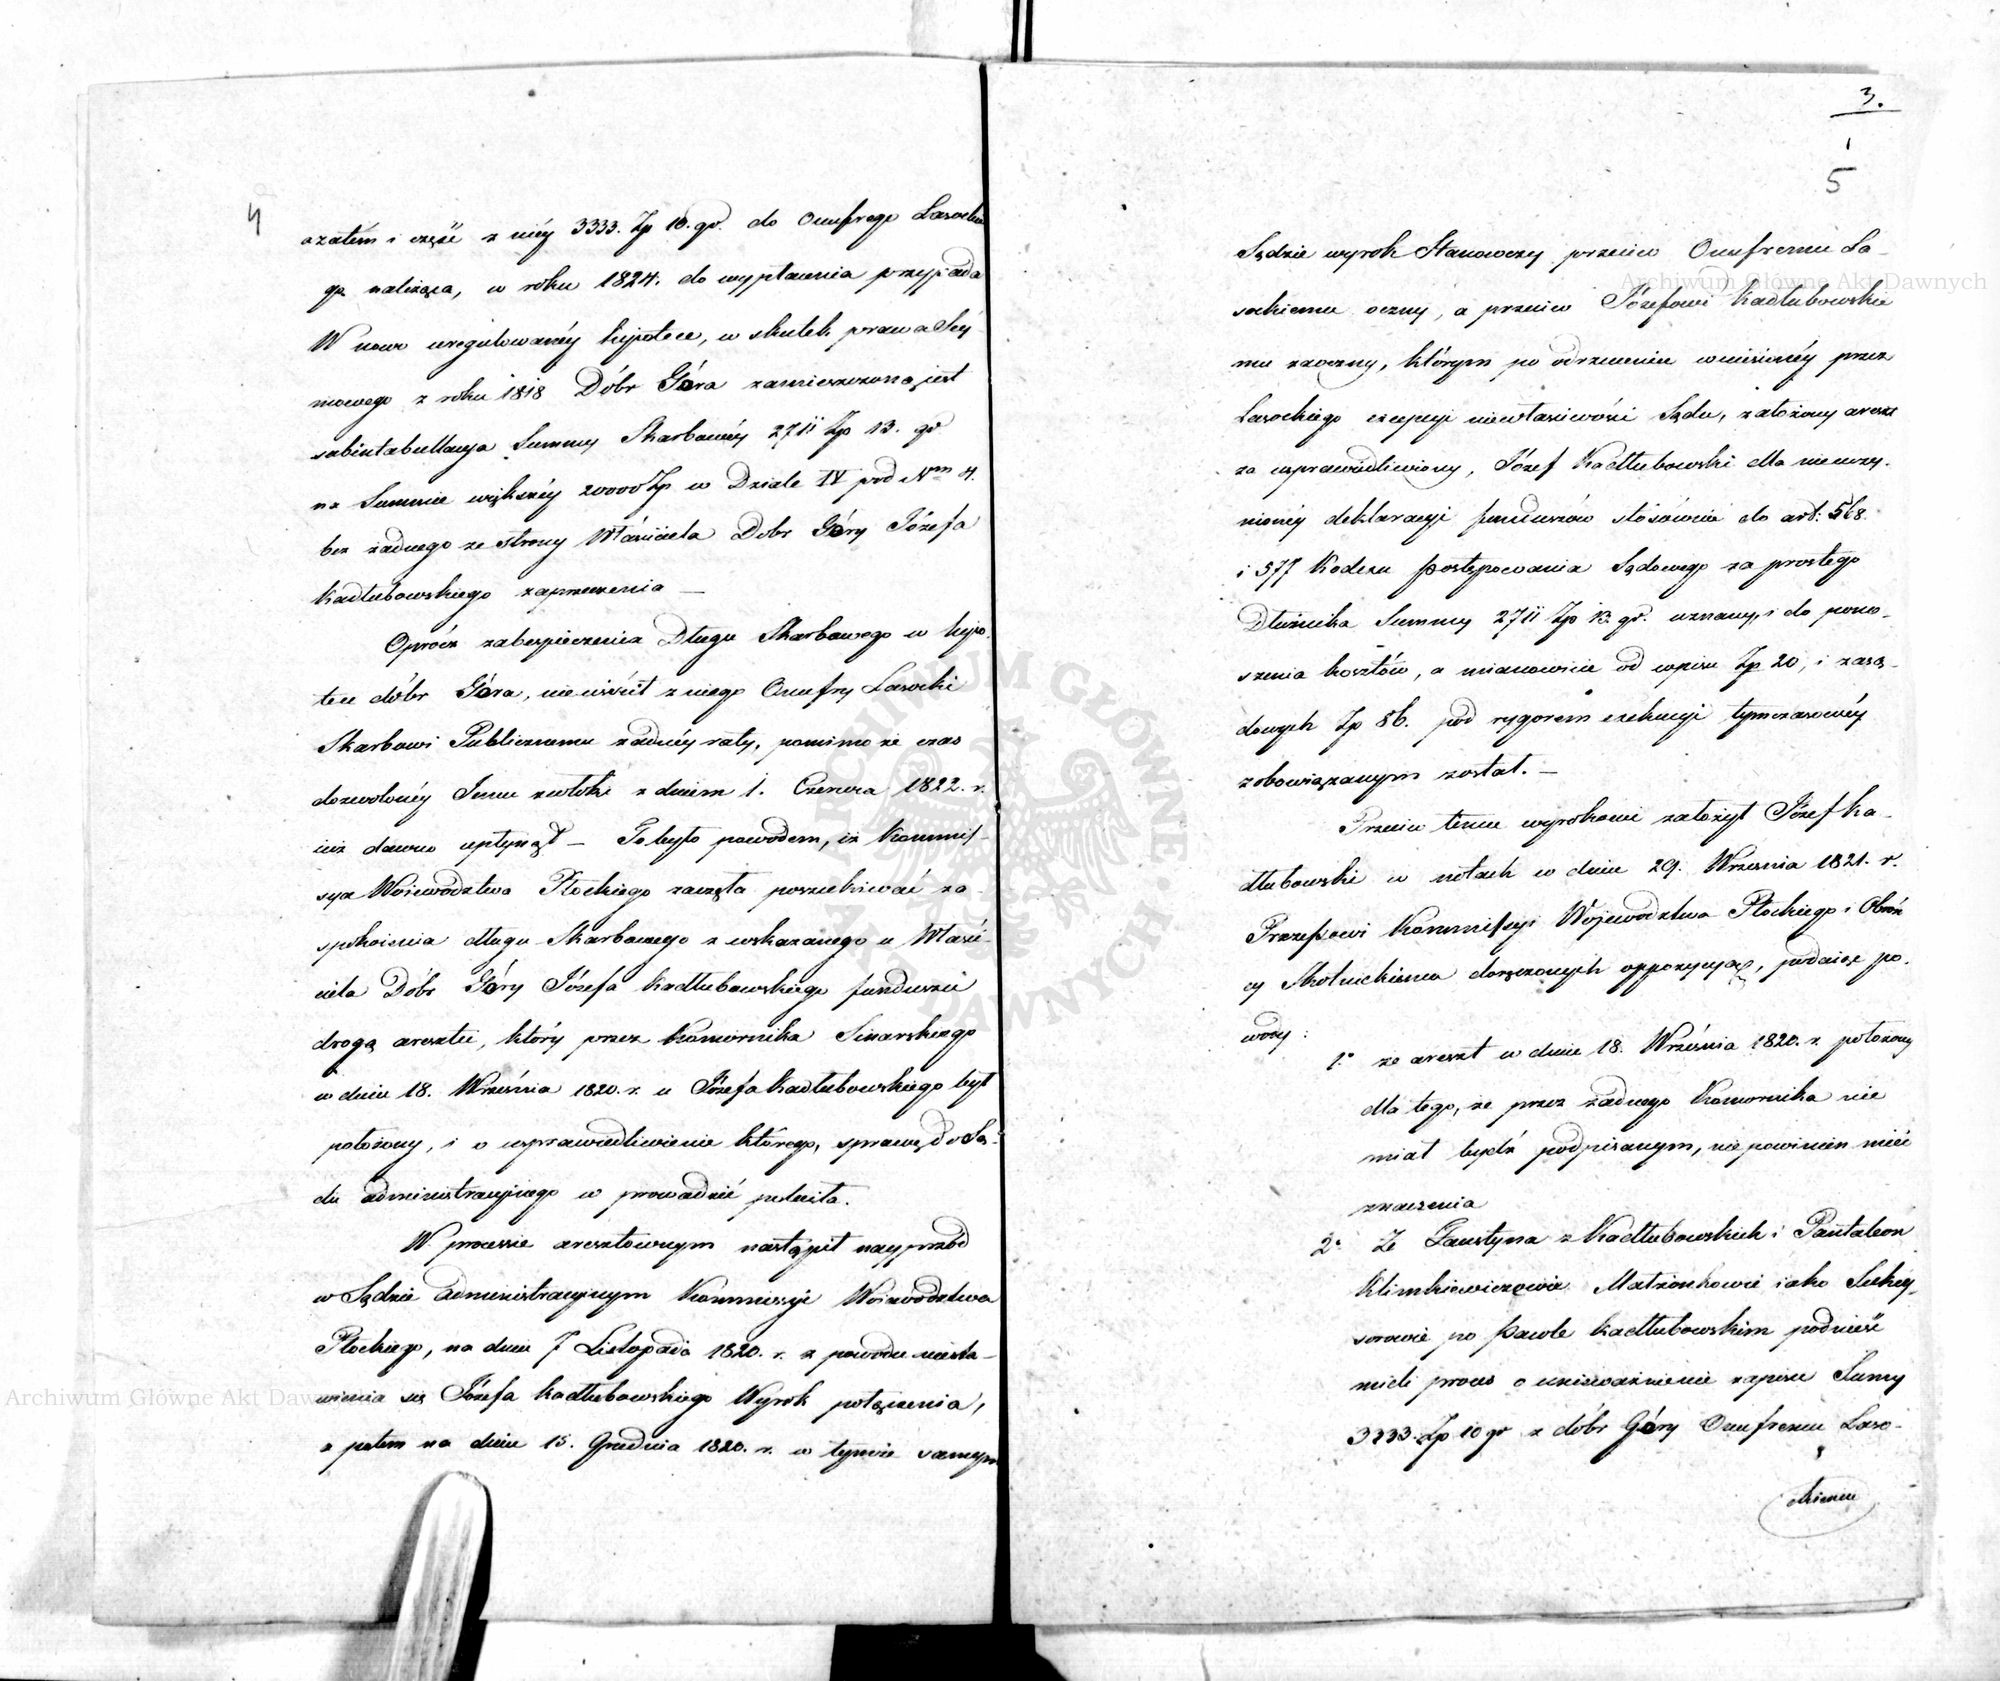 4
azatém i część z niéy 3333. Zp 10. gr. do Onufrego Lasockie
go należąca, w roku 1824. do wypłacenia przypada
W nowo uregulowanéy hypotece, w skutek prawa Séy
mowego z roku 1818 Dóbr Góra zamieszczoną jest
subintabullacya Summy Skarbowéy 2711 Zp 13. gr
na Summie większéy 20000 Zp w Dziale IV pod Nrm 4.
bez żadnego ze strony Właściciela Dóbr Góry Józefa
Kadłubowskiego zaprzeczenia —
Oprócz zabezpieczenia Długu Skarbowego w hypo-
tece dóbr Góra, nie uiścił z niego Onufry Lasocki
Skarbowi Publicznemu żadnéy raty, pomimo że czas
dozwolonéy Jemu zwłoki z dniem 1. Czerwca 1822. r.
iuż dawno upłynął — To było powodem, iż Kommis-
sya Województwa Płockiego zaczęła poszukiwać za-
spokoienia długu Skarbowego z wskazanego u Właści-
ciela Dóbr Góry Józefa Kadłubowskiego funduszu
drogą aresztu, który przez Komornika Sinarskiego
w dniu 18. Września 1820. r. u Józefa Kadłubowskiego był
położony, i o usprawiedliwienie którego, sprawę do Są-
du administracyjnego w prowadzić poleciła.
W processie aresztowym nastąpił nayprzód
w Sądzie Administracyjnym Kommissyi Województwa
Płockiego, na dniu 7 Listopada 1820. r. z powodu niesta-
wienia się Józefa Kadłubowskiego Wyrok połączenia,
a potem na dniu 15. Grudnia 1820. r. w tymże samym
3.
1
5
Sądzie wyrok Stanowczy przeciw Onufremu La-
sockiemu oczny, a przeciw Józefowi Kadłubowskie
mu zaoczny, którym po odrzuceniu wniesionéy przez
Lasockiego excepcyi niewłaściwości Sądu, założony areszt
za usprawiedliwiony, Józef Kadłubowski dla nieuczy-
nionéy deklaracyi funduszów stósownie do art: 568.
i 577 Kodexu Postępowania Sądowego za prostego
Dłużnika Summy 2711 Zp 13. gr. uznany, i do pono-
szenia kosztów, a mianowicie od wpisu Zp 20, i zasą-
dowych Zp 86. pod rygorem exekucyi tymczasowéy
zobowiązanym został. —
Przeciw temu wyrokowi założył Józef Ka-
dłubowski w notach w dniu 29. Września 1821. r.
Prezessowi Kommissyi Województwa Płockiego i Obroń
cy Skolnickiemu doręczonych oppozycyą, podaiąc po-
wody:
1. że areszt w dniu 18. Września 1820. r. położony
dla tego, że przez żadnego Komornika nie
miał bydź podpisanym, nie powinien mieć
znaczenia
2. Że Faustyna z Kadłubowskich i Pantaleon
Klimkiewiczowie Małżonkowie iako Sukces-
sorowie po Pawle Kadłubowskim podnieść
mieli proces o unieważnienie zapisu Sumy
3333. Zp 10 gr z dóbr Góry Onufremu Laso-
ckiemu
Archiwum Główne Akt Dawnych
Archiwum Główne Akt Dawnych
ARCHIWUM GŁÓWNE AKT DAWNYCH